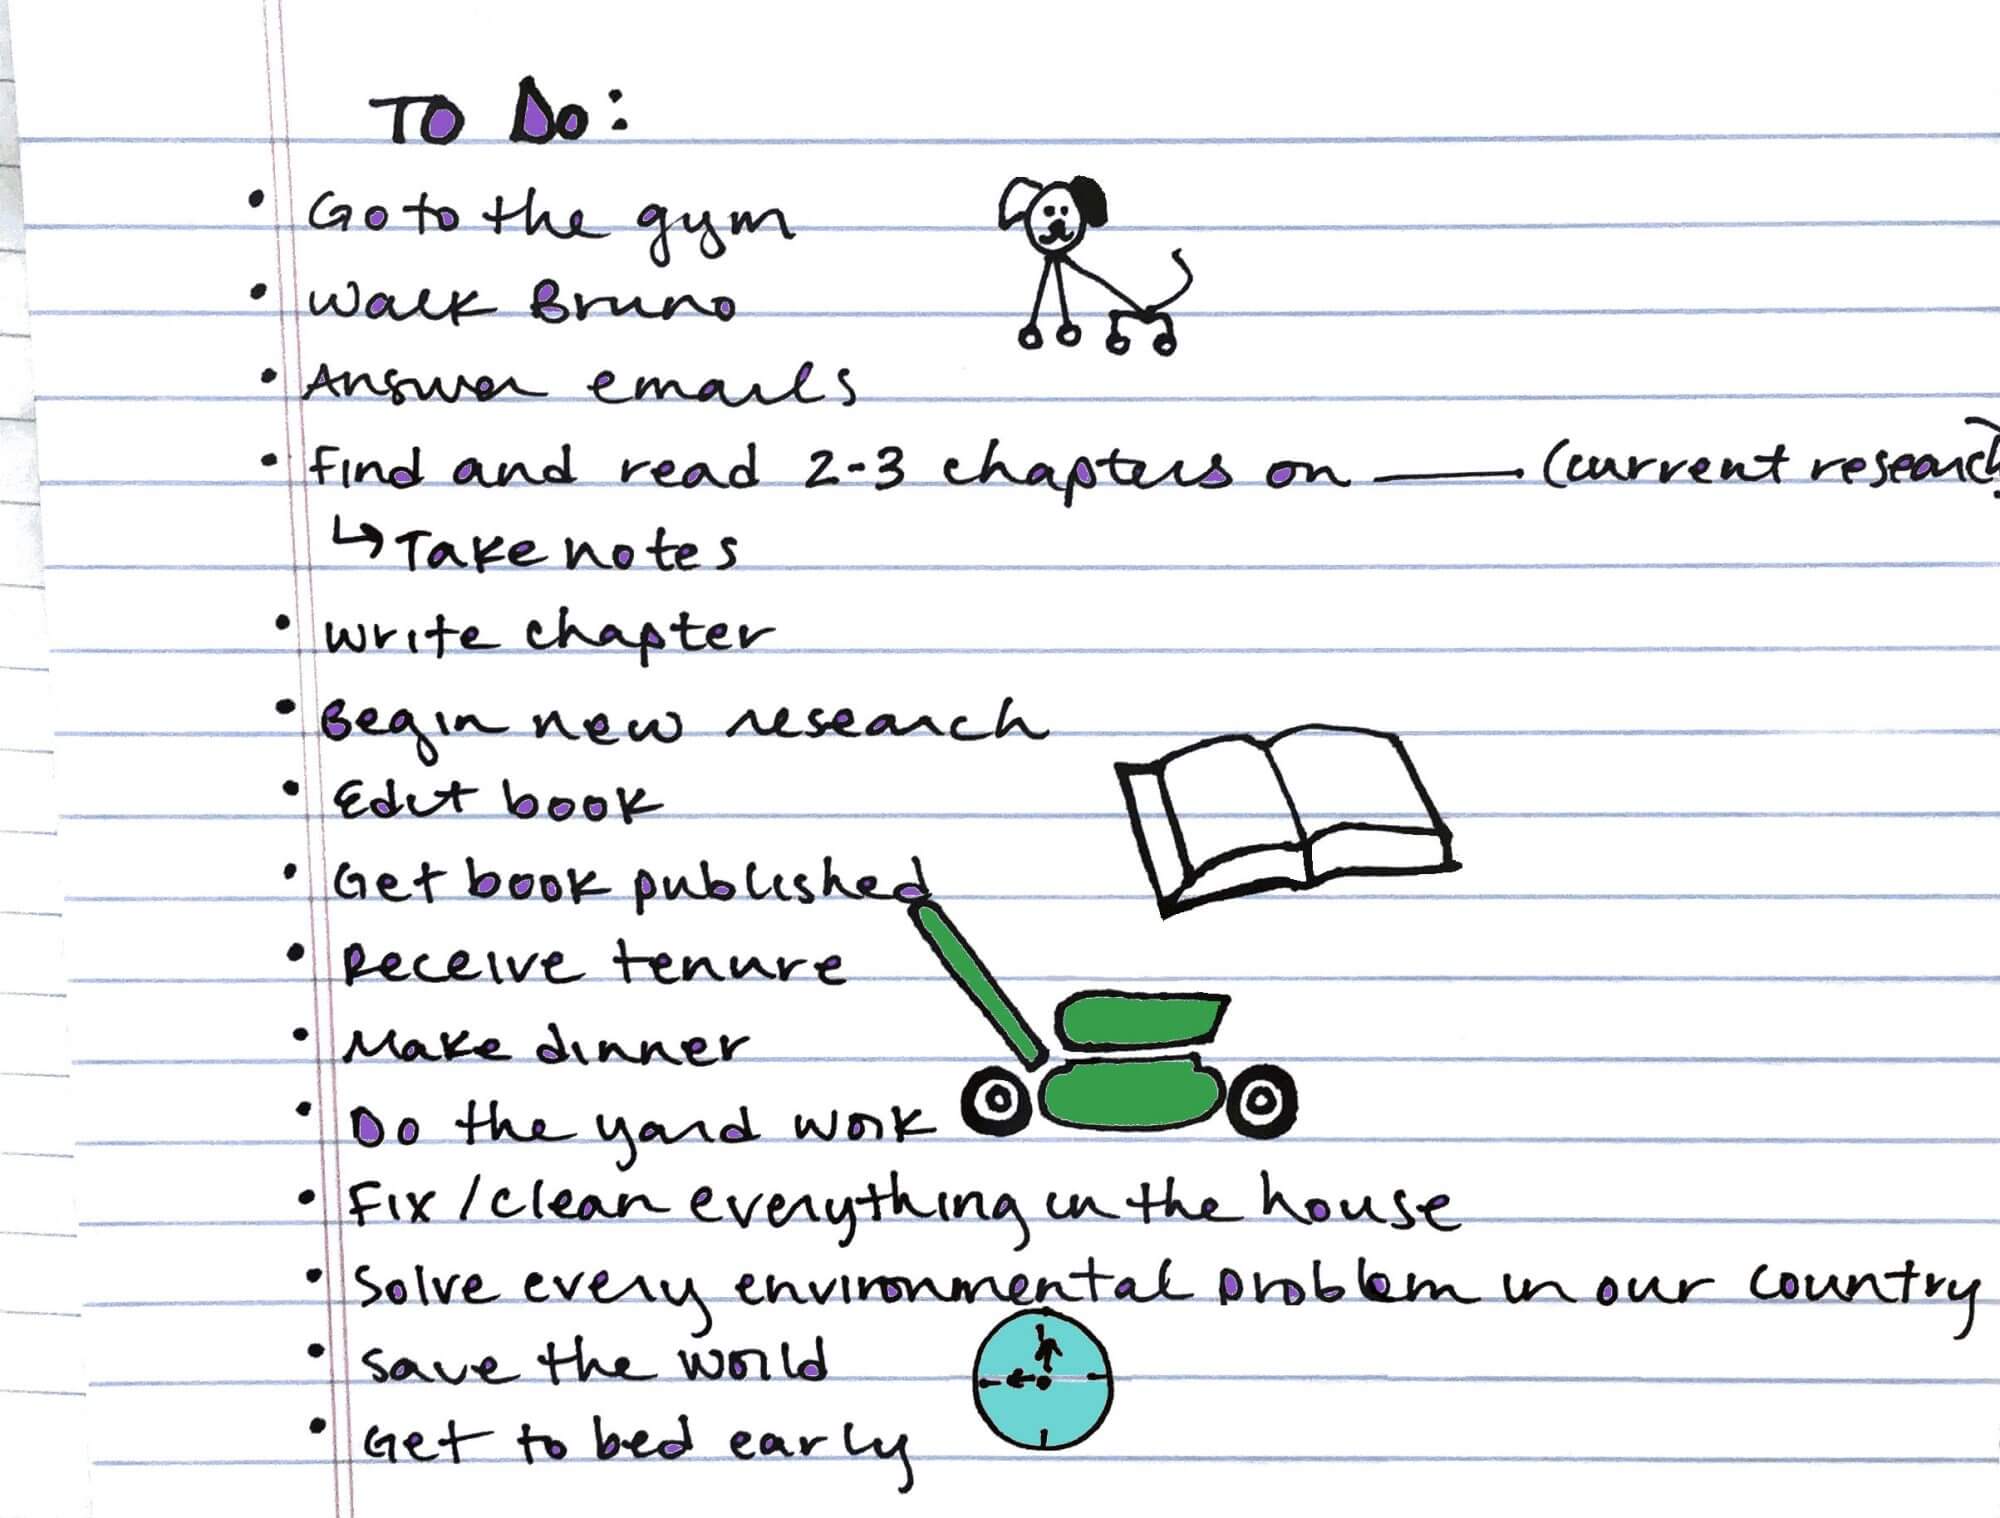 To Do:
• Go to the gym
• Walk Bruno
• Answer emails
• Find and read 2-3 chapters on ____ (current research)
↳ Take notes
• Write chapter
• Begin new research
• Edit book
• Get book published
• Receive tenure
• Make dinner
• Do the yard work
• Fix/clean everything in the house
• Solve every environmental problem in our country
• Save the world
• Get to bed early